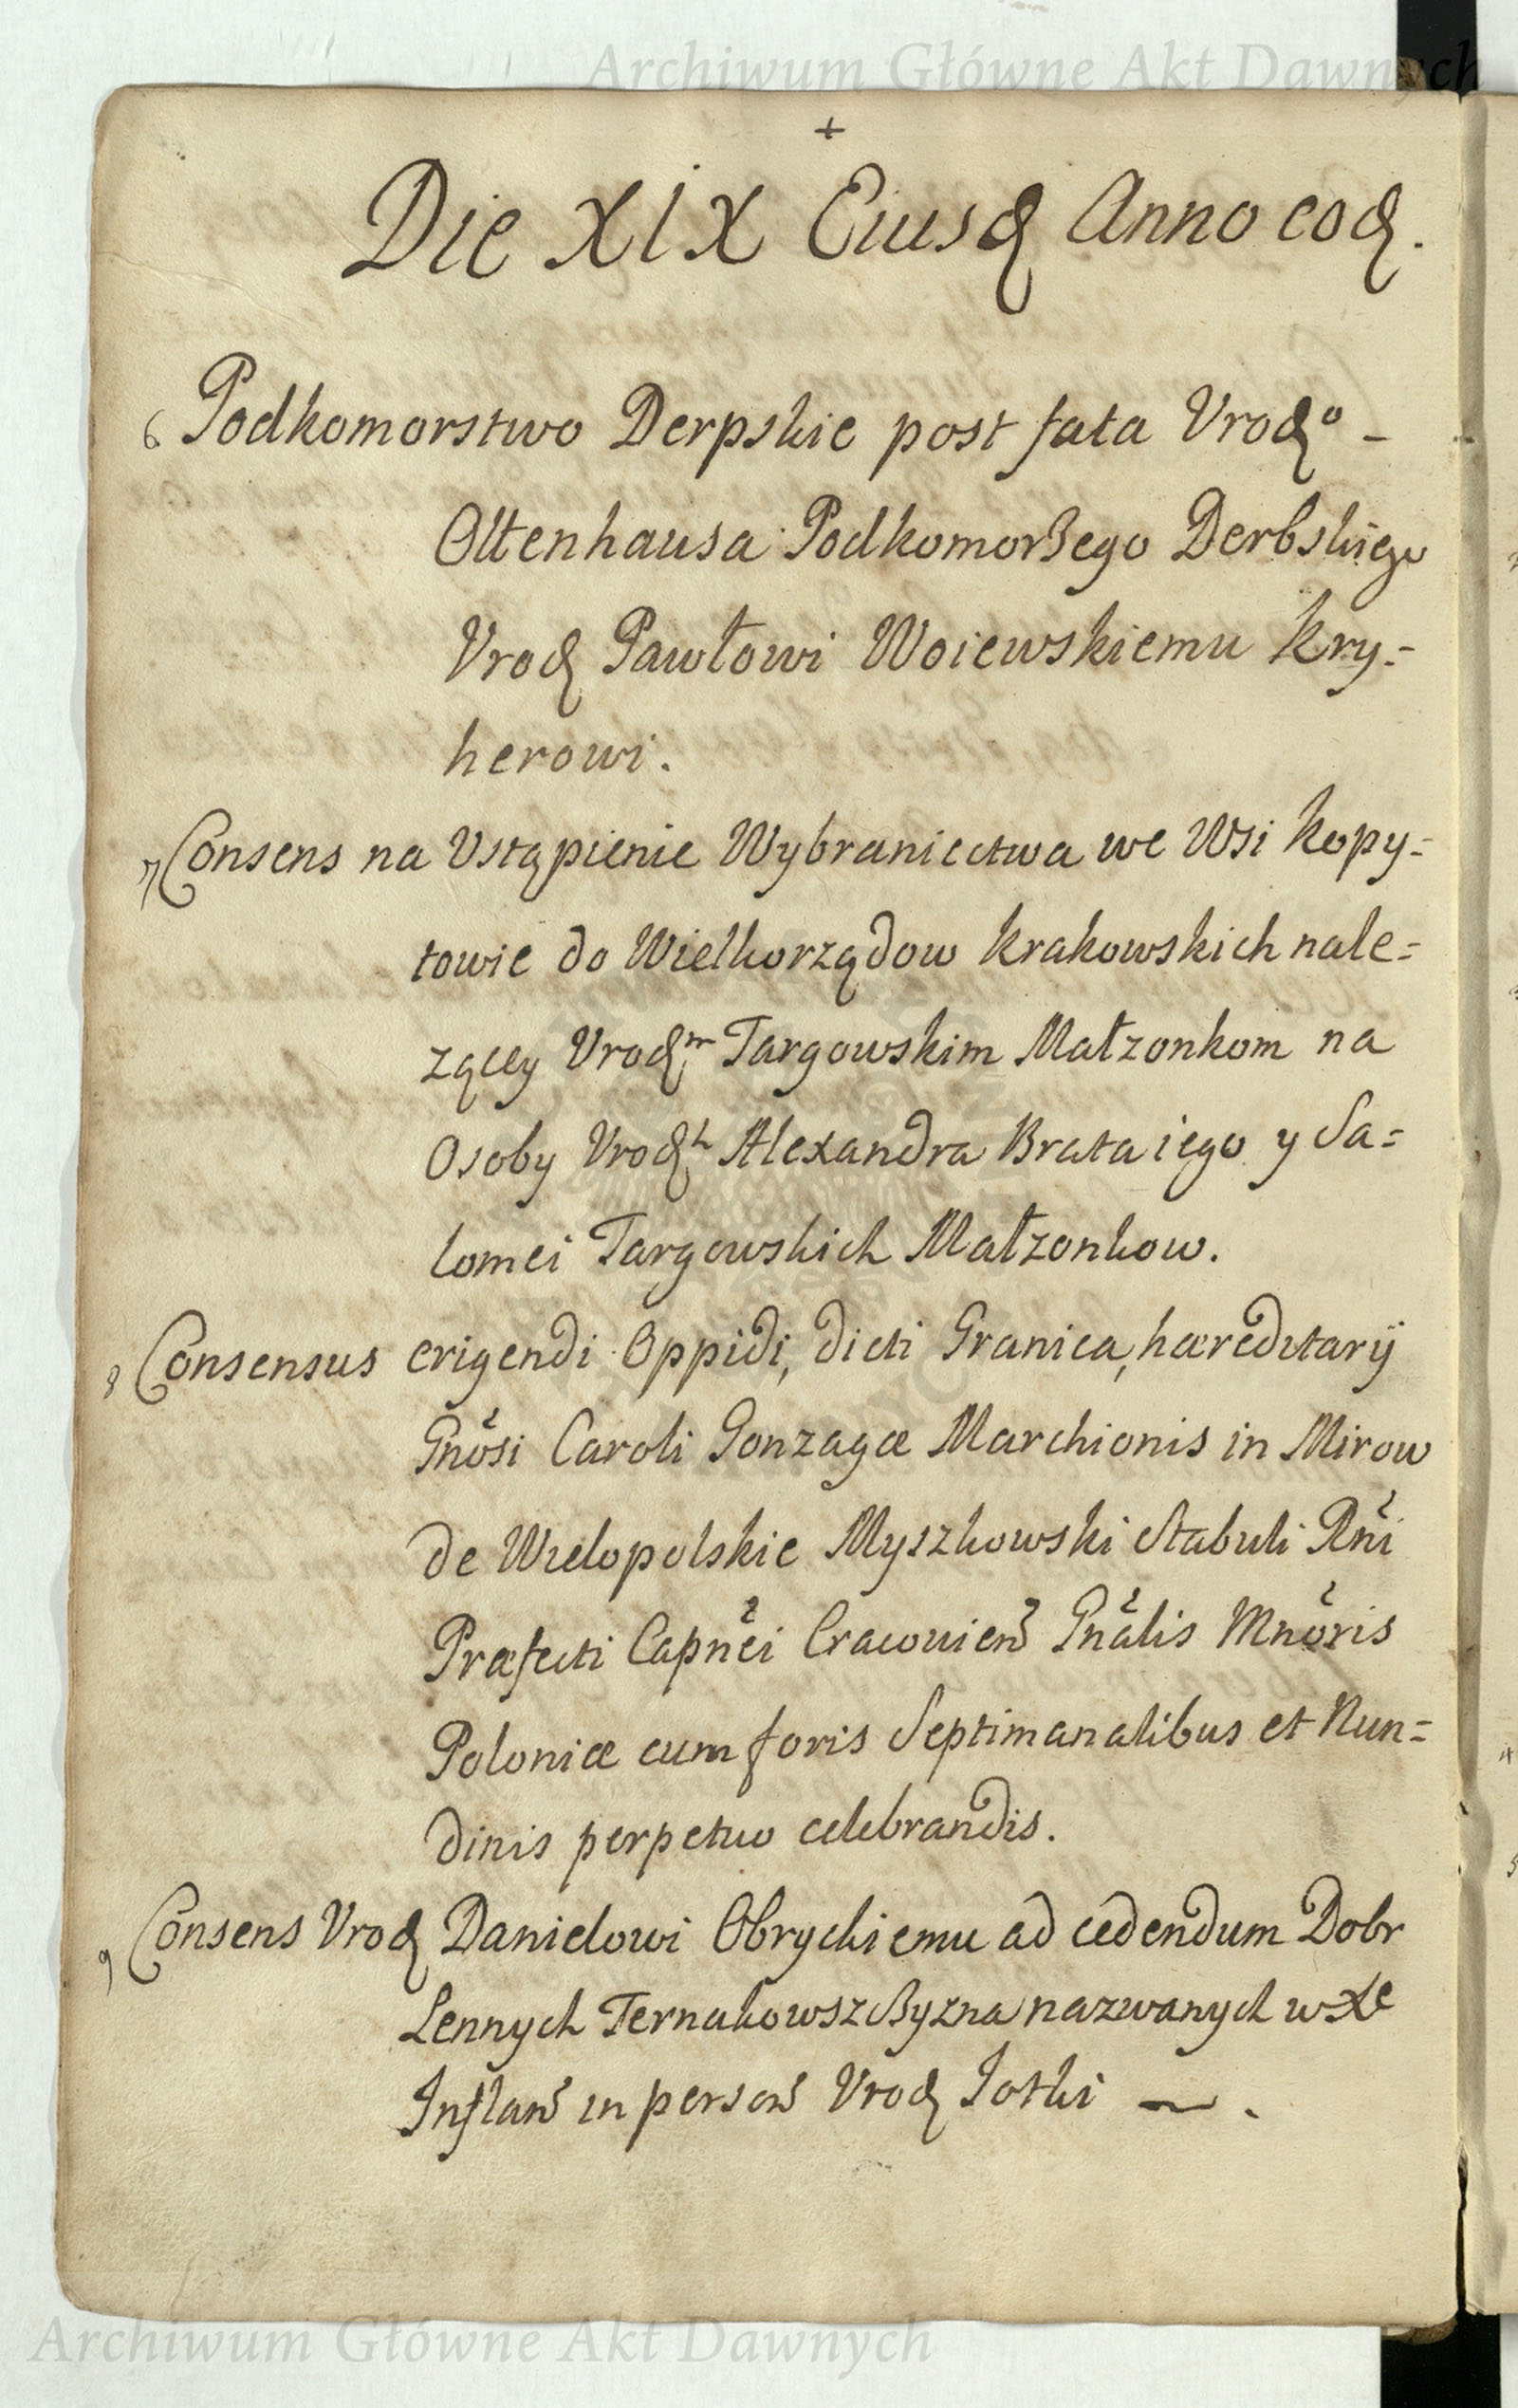 Archiwum Główne Akt Dawnych
+
Die XIX Eiusd Anno eod.
6 Podkomorstwo Derpskie post fata Vrodo –
Oltenhausa Podkomorzego Derbskiego
Vrod Pawłowi Woiewskiemu Kry:=
herowi.
7 Consens na Vstąpienie Wybraniectwa we Wsi Kopy=
towie do Wielkorządow Krakowskich nale=
zącey Vrodm Targowskim Małzonkom na
Osoby Vrodh Alexandra Brata iego y Sa=
lomei Targowskich Małzonkow.
8 Consensus erigendi Oppidi, dicti Granica, hæreditarij
Gnosi Caroli Gonzagæ Marchionis in Mirow
de Wielopolskie Myszkowski Stabuli Rni
Præfecti Capnei Cracouien Gnalis Mnoris
Poloniæ cum foris Septimanalibus et Nun=
dinis perpetuo celebrandis.
9 Consens Vrod Danielowi Obryckiemu ad cedendum Dobr
Lennych nazwanych w Xe
Inflan in person Vrod Iotki ~ .
Archiwum Główne Akt Dawnych